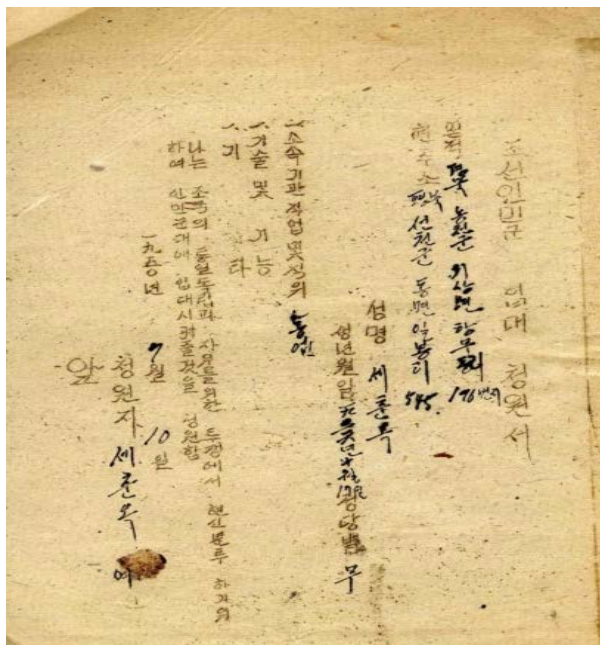 조선인민군 입대 청원서
원적 평북 농천군 기상면 항무리 176번지
현주소 평북 선천군 동면 인봉리 545.
성명 세준옥
생년월일 정당별 무
소속기관 직업 및 직위 농업
기술 및 기능
기타
나는 조국의 통일독립과 자유를 위한 투쟁에서 헌신분투 하기 위
하여 인민군대에 입대시켜줄것을 청원함
一九五〇년 7월 10일
청원자 세준옥
앞